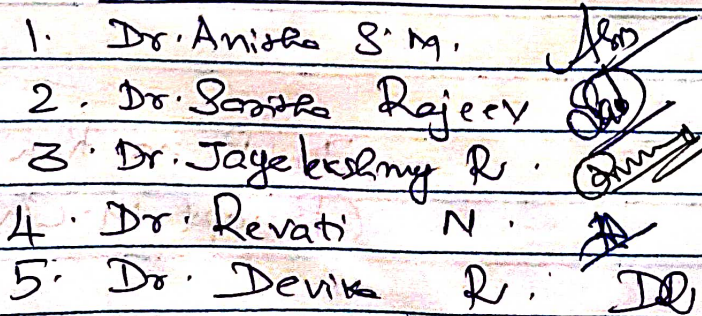 1. Dr. Anitha S.M.
2. Dr. Saritha Rajeev
3. Dr. Jayelekshmy R.
4. Dr. Revati N.
5. Dr. Devika R. DR